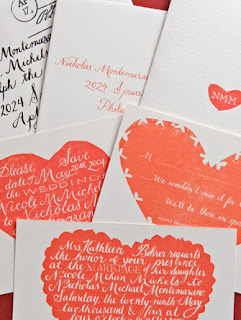 Montemurro
Michael
2024 S
Nicholas Montemurro
2024 Spruce
Phila
NMM
Please Save
date of May 29, 2004
WEDDING
Nicole M Michi
to Nicholas M
Montemur
M
We wouldn't miss it for
We'll be there in sp
Mrs. Kathleen Bohrer requests
the honor of your presence
at the MARRIAGE of her daughter
Nicole Miam Michels to
Nicholas Michael Montemurro
Saturday, the twenty-ninth May
two thousand & four at